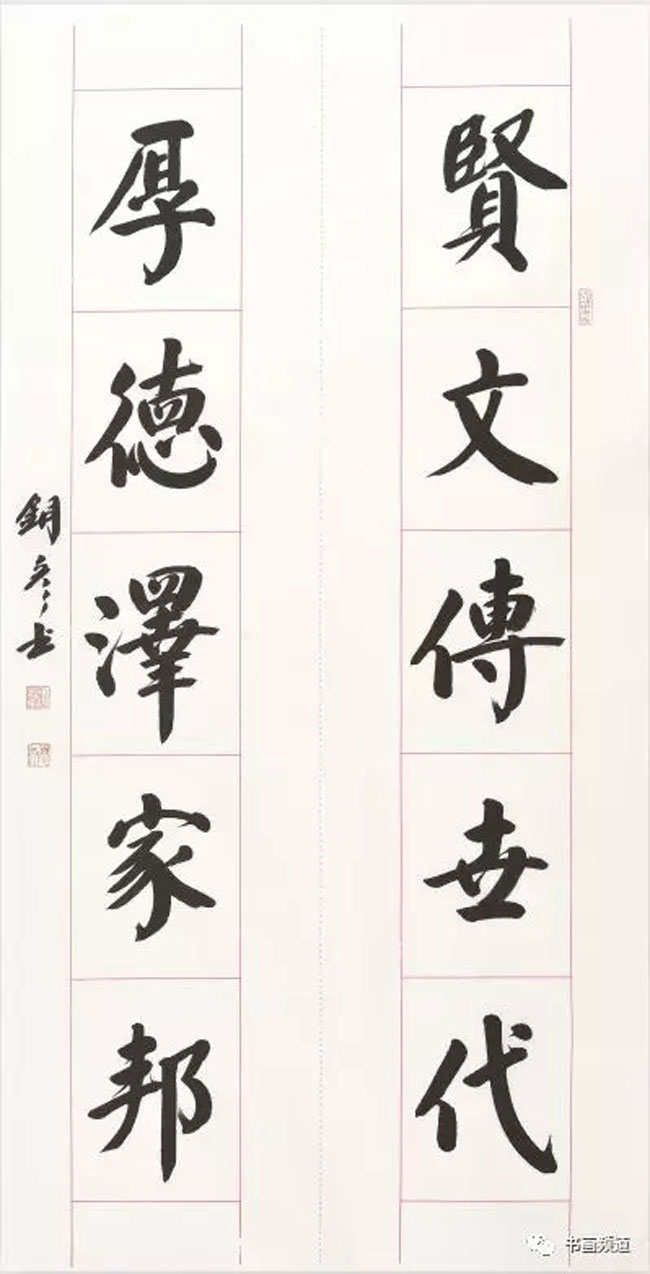 賢文傳世代
厚德澤家邦
书画频道